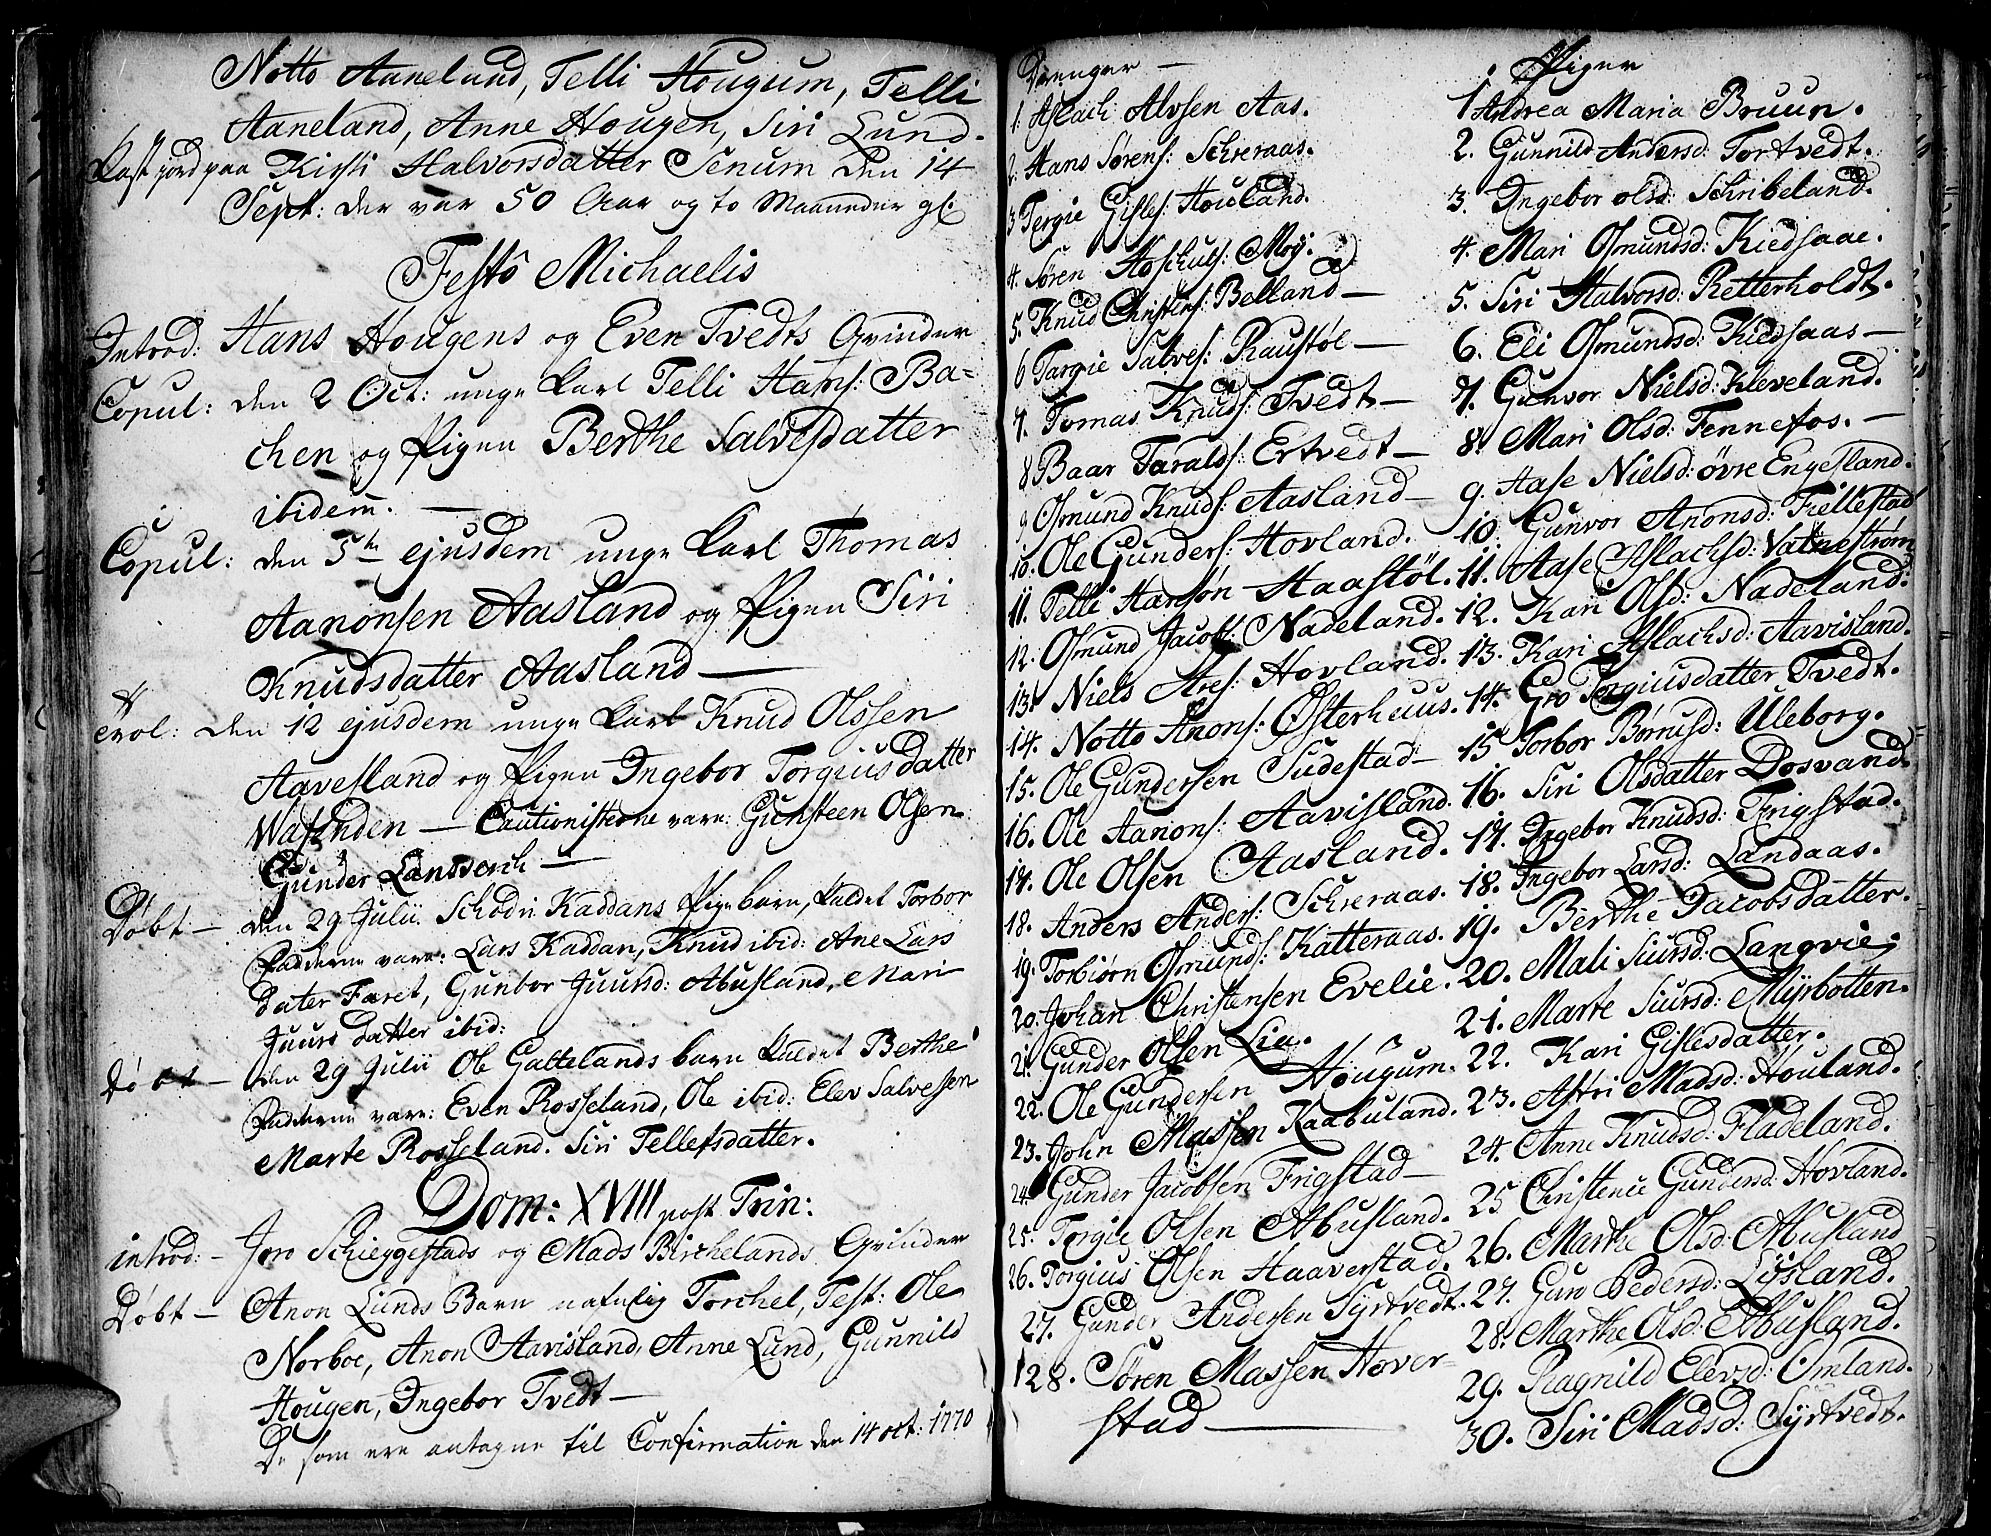 Notto Aaneland, Telli Hougum, Telli
Aaneland, Anne Hougen, Siri Lund.
Kast jord paa Kirsti Halvorsdatter Senum den 14
Sept: der var 50 Aar og to Maaneder gl:
Festo Michaelis
Introd: Hans Hougens og Even Tvedts Qvinder
Copul: den 2 Oct: unge Karl Telli Hans: Ba-
chen og Pigen Berthe Salvesdatter
ibidem.
Copul: den 5te ejusdem unge Karl Thomas
Aanonsen Aasland og Pigen Siri
Knudsdatter Aasland
Trol: den 12 ejusdem unge Karl Knud Olssen
Aavesland og Pigen Ingebor Torgiusdatter
Wasenden — Cautionisterne vare: Gunsteen Olsen
Gunder
Døbt — den 29 Julii Kaddans Pigebarn, kaldet Torbor
Fadderne vare: Lars Kaddan, Knud ibid: Ane Lars
dater Faret, Gunbor Juursd: Abusland, Mari
Juurs datter ibid:
Døbt — den 29 Julii Ole Gattelands barn kaldet Berthe
Fadderne vare: Even Rosseland, Ole ibid: Elev Salvessen
Marte Rosseland. Siri Tellefsdatter.
Dom: XVIII post Trin:
introd: — Joro Schieggestads og Mads Birchelands Qvinder
Døbt — Anon Lunds Barn nafnlig Torchel, Test: Ole
Norboe, Anon Aavisland, Anne Lund, Gunnild
Hougen, Ingebor Tvedt —
De som ere antagne til Confirmation den 14 oct: 1770
Drenger —
1. Aslach Alvsen Aas.
2. Hans Sørens: Schreraas.
3 Tergie Gisles: Houland.
4. Søren Hoschuls: Moy:
5. Knud Christens: Belland —
6 Targie Salves: Raustøl —
7. Tomas Knuds: Tvedt —
8 Baar Taralds: Ertvedt —
9 Osmund Knuds: Aasland —
10. Ole Gunders: Hovland.
11. Telli Hansøn Haastøl.
12. Osmund Jacobs: Nadeland.
13. Niels Ares: Hovland.
14. Notto Anons: Østerhuus.
15. Ole Gundersen Sudestad —
16. Ole Aanons: Aavisland.
17. Ole Olsen Aasland.
18. Anders Anders: Schreraas.
19. Torbiørn Osmunds: Katteraas.
20. Johan Christensen Evelie.
21. Gunder Olsen Lia.
22. Ole Gundersen Hougum.
23. John Massen Kaabuland.
24. Gunder Jacobsen Frigstad —
25. Torgie Olsen Abusland.
26. Torgius Olsen Haaverstad.
27. Gunder Andersen Syrtvedt.
28. Søren Massen Hover-
stad
Piger
1 Andrea Maria Bruun.
2. Gunnild Andersd: Tortvedt.
3. Ingebor olsd: Schribeland.
4. Mari Osmundsd: Kiedsaae.
5. Siri Halvorsd: Retterholdt.
6. Eli Osmundsd: Kiedsaas —
7. Gunvor Nielsd: Kleveland.
8. Mari Olsd: Fennefos. —
9. Aase Nielsd: øvre Engesland.
10. Gunvor Anonsd: Fiellestad
11. Aase Aslachsd: Vatnestrøm
12. Kari Olsd: Nadeland.
13. Kari Aslachsd: Aavisland.
14. Gro Torgiusdatter Tvedt.
15 Torbor Børnusd: Uleborg.
16. Siri Olsdatter Dosvand
17. Ingebor Knudsd: Frigstad.
18. Ingebor Larsd: Landaas.
19. Berthe Jacobsdatter.
20. Mali Siursd: Langvie,
21. Marte Siursd: Myrbotten.
22. Kari Gislesdatter.
23. Astri Madsd: Houland.
24. Anne Knudsd: Fladeland.
25 Christence Gundersd: Hovland.
26. Marthe Olsd: Abusland
27. Guro Pedersd: Lysland.
28. Marthe Olsd: Abusland.
29. Ragnild Elevsd: Omland.
30. Siri Madsd: Syrtvedt.